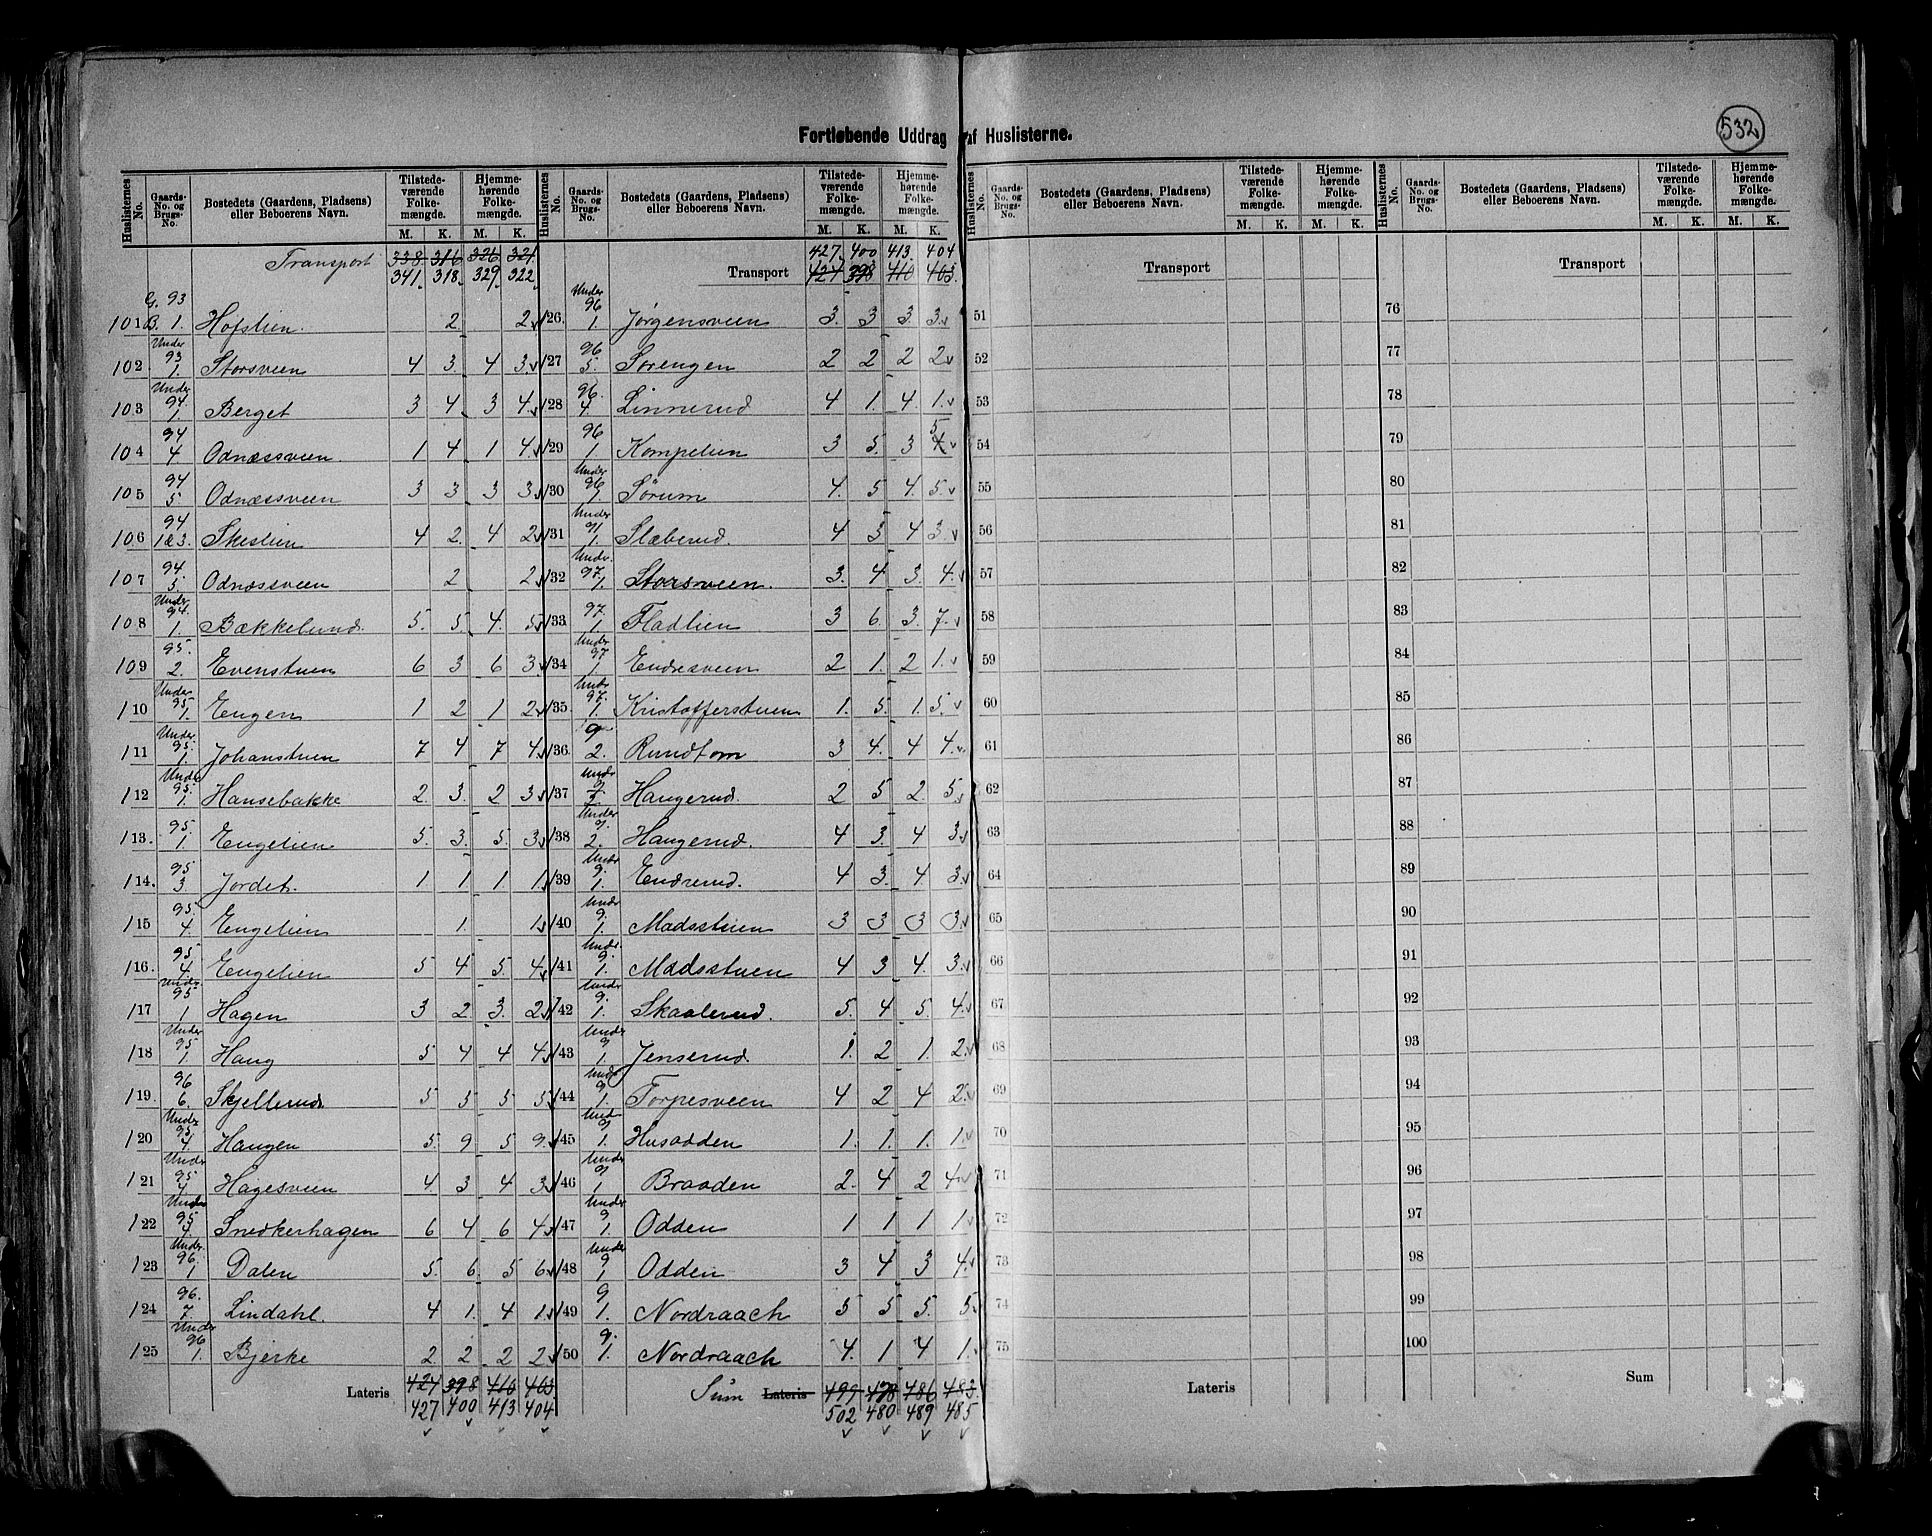 532
Fortløbende Uddrag af Huslisterne.
Huslisternes No. | Gaards-No. og Brugs-No. | Bostedets (Gaardens, Pladsens) eller Beboerens Navn. | Tilstedeværende Folkemængde. M. K. | Hjemmehørende Folkemængde. M. K.
Transport 338 316 326 321
341 318 329 322
101 G. 93 B. 1. Hofslien. 2 2
102 Under 93 1. Storsveen 4 3 4 3
103 Under 94 1. Berget 3 4 3 4
104 94 4 Odnæssveen. 1 4 1 4
105 94 5 Odnæssveen 3 3 3 3
106 94 1&3. Skeslien 4 2 4 2
107 94 5. Odnæssveen 2 2
108 Under 94. 1. Bækkelund. 5. 5. 4. 5
109 95. 2. Evenstuen 6 3 6 3
110 Under 95 1. Engen 1 2 1 2
111 Under 95. 1. Johanstuen 7 4 7 4
112 Under 95. 1. Hansebakke 2. 3. 2 3
113. 95. 1 Engelien 5. 3. 5. 3
114. 95 3 Jordet. 1 1 1 1
115 95. 4. Engelien 1. 1
116. 95 4. Engelien 5 4 5. 4
117 Under 95 1 Hagen 3 2 3. 2
118 Under 95 1. Haug 5 4 4 4
119. 96 6. Skjellerud 5 3 5 3
120 Under 95. 4. Haugen 5. 9 5 9.
121 Under 95 4 Hagesveen 4. 3 4 3
122 Under 95 4. Snedkerhagen 6 4 6 4
123 Under 96. 1 Dalen 5. 6. 5 6
124 96. 7 Lindahl. 4 1. 4 1
125 Under 96 1. Bjerke 2 2 2 2
Lateris 424 398 410 403
427 400 413 404
Transport 427. 400 413. 404
424 398 410 403.
126. Under 96 1. Jørgensveen 3. 3 3. 3
127 96 5. Sørengen 2 2 2 2
128 96. 4. Linnerud 4 1. 4. 1
129 96 1 Kompelien 3 5. 3 5 4
130 Under 96 1. Sørum 4. 5 4. 5.
131 Under 91 1. Slæberud. 4 3 4 3
132 Under. 97. 1. Storsveen. 3. 4 3. 4.
133 97. 1. Fladlien 3 6. 3. 7.
134 Under 97 1. Endresveen 2 1. 2 1.
135. Under 97. 1. Kristofferstuen 1. 5. 1. 5.
136. 9 2. Rundtom 3 4. 4 4.
137 Under 9. 2. Haugerud. 2 5 2. 5
138 Under 9. 2. Haugerud. 4 3. 4 3
139 Under 9. 1. Endrerud. 4 3. 4. 3
140 Under 9. 1. Madsstuen 3 3 3 3
141 Under. 9. 1. Madsstuen 4 3 4. 3
142 Under 9. 1. Skaalerud. 5. 4 5 4
143 Under 9 1. Jenserud. 1. 2 1. 2
144 Under 9 1. Torpesveen 4 2 4 2
145 Under 9 1. Husodden 1. 1. 1. 1
146 Under 9 1 Braaden 2. 4 2 4
147 Under 9 1. Odden 1 1 1 1
148 Under 9 1 Odden 3 4 3 4
149 9 1. Nordraach 5 5 5. 5
150 9. 1. Nordraach 4. 1 4 1.
Sum Lateris 499 478 486 483
502 480 489 485
Huslisternes No. | Gaards-No. og Brugs-No. | Bostedets (Gaardens, Pladsens) eller Beboerens Navn. | Tilstedeværende Folkemængde. M. K. | Hjemmehørende Folkemængde. M. K.
Transport
51
52
53
54
55
56
57
58
59
60
61
62
63
64
65
66
67
68
69
70
71
72
73
74
75
Lateris
Huslisternes No. | Gaards-No. og Brugs-No. | Bostedets (Gaardens, Pladsens) eller Beboerens Navn. | Tilstedeværende Folkemængde. M. K. | Hjemmehørende Folkemængde. M. K.
Transport
76
77
78
79
80
81
82
83
84
85
86
87
88
89
90
91
92
93
94
95
96
97
98
99
100
Sum